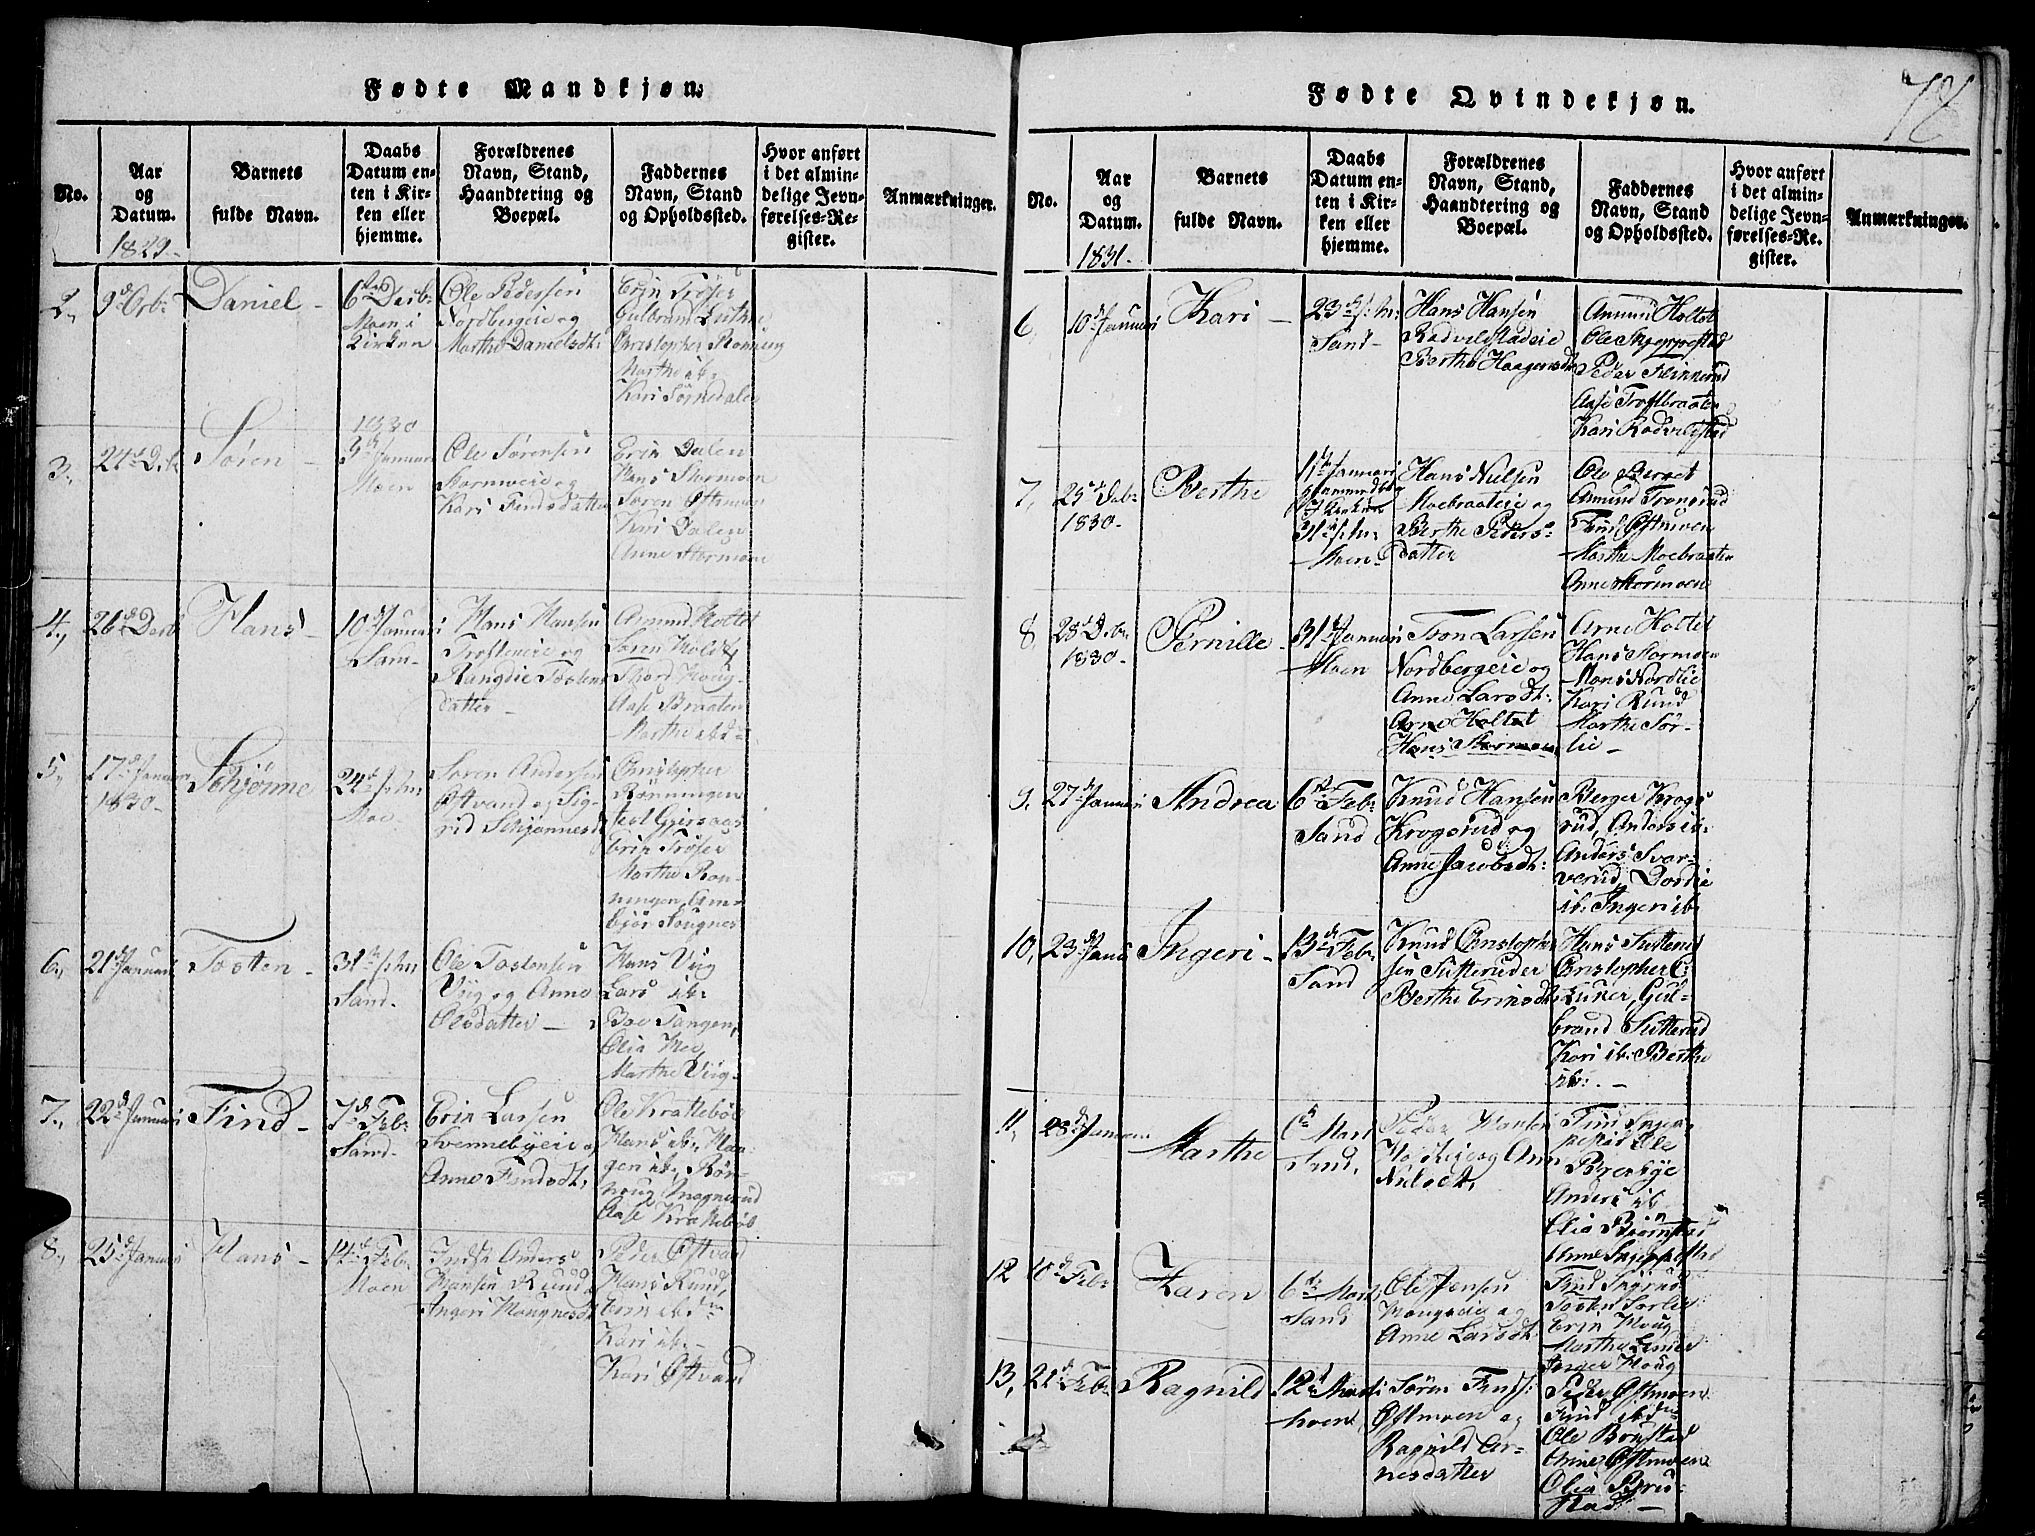 Fødte Mandkjøn.
No.
Aar
og
Datum.
1829.
Barnets
fulde Navn.
Daabs
Datum en-
ten i Kir-
ken eller
hjemme.
Forældrenes
Navn, Stand,
Haandtering og
Boepæl.
Faddernes
Navn, Stand
og Opholdssted.
Hvor anført
i det almin-
delige Jevn-
førelses-Re-
gister.
Anmærkninger.
2,
9d Octb:
Daniel -
6te Decb:
Moen i
Kirken
Ole Pedersen
Nordbergeie og
Marthe Danielsdt:
Erik Trøser
Gulbrand
Christopher Rønning
Marthe ib:
Kari Sørnedalen
3,
24d Decb
Søren -
1830
3d Januari
Moen
Ole Sørensen
Stormoeie og
Kari Findsdatter
Erik Dalen
Hans Stormoen
Søren Østmoen
Kari Dalen
Anne Stormoen
4,
26d Decb
Hans -
10d Januari
Sand-
Hans Hansen
Trosteneie og
Rangdie Tostens
datter -
Amund Holtet
Søren
Thord Houg-
Aase Braaten
Marthe ibd:
5,
17d Januari
1830-
Schjønne
24d s: m:
Moe-
Søren Andersen
Østvand og Sig-
rid Schjønnesd
Christopher
Rønningen
Erik Trøser
Marthe Røn-
ningen, Em-
bjør Hougnes
6,
21d Januari
Tosten -
31d s: m:
Sand-
Ole Tostensen
Viig og Anne
Olsdatter -
Hans Viig
Lars ib:
Boe Tangen,
Olia Moe
Marthe Viig-
7,
22d Januari
Find -
7d Feb:
Sand-
Erik Larsen
Svennebyeie og
Anne Findsdt,
Ole Krattebøl
Hans ib: Haa-
gen ib: Røn-
noug Magnerud
Aase Krattebøl
8,
25d Januari
Hans -
14d Feb:
Moen
Anders
Hansen Rund
Ingeri Hougnesdt
Peder Østvand
Hans Rund,
Erik ibd
Kari ib: -
Kari Østvand
Fødte Qvindekjøn.
No.
Aar
og
Datum.
1831.
Barnets
fulde Navn.
Daabs
Datum en-
ten i Kir-
ken eller
hjemme.
Forældrenes
Navn, Stand,
Haandtering og
Boepæl.
Faddernes
Navn, Stand
og Opholdssted.
Hvor anført
i det almin-
delige Jevn-
førelses-Re-
gister.
Anmærkninger.
6,
10d Januari
Kari -
23d s: m:
Sand-
Hans Hansen
Rodvelstadeie
Berthe Haagensdt
Amund Holtet
Ole Skyrpestad
Peder Kinnerud
Aase Trostbraaten
Kari Rodvelstad
7,
25d Decb:
1830-
Berthe
11d Januari
I Kirken
31d s: m:
Moen-
Hans Nielsen
Moebraateie og
Berthe Peders-
datter
Ole Berret
Amund Trongrud
Find Østmoen
Marthe Moebraaten
Anne Stormoen
8,
28d Decb:
1830-
Pernille -
31d Januari
Moen
Tron Larsen
Nordbergeie og
Anne Larsdt:
Arne Holtet
Hans Stormoen
Arne Holtet
Hans Stormoen
Mons Nordlie
Kari Rund
Marthe Sør-
lie -
9,
27d Januari
Andrea
6te Feb:
Sand
Knud Hansen
Krogsrud og
Anne Jacobsdt:
Berger Krogs-
rud, Anders ib:
Anders Svar-
verud, Dordie
ib: Ingeri ib:
10,
23d Janu
Ingeri -
13d Feb:
Sand
Knud Christoph-
sen Sutteruder
Berthe Eriksdt
Hans Sutterud
Christopher C:
Luner, Gul-
brand Sutterud
Kari ib: Berthe
ib: -
11,
28d Januari
Marthe
6te Mart
Sand,
Peder Hansen
og Ann
Nielsdt,
Find Skyr-
pestad Ole
Brenbye
Anders ib
Olia Bjørnstad
Anne Skyrpestad
12
10d Feb:
Karen
6te Mart
Sand
Ole Jensen
Hougseie og
Anne Larsdt
Find
Tosten Sørlie
Erik Houg
Marthe Linder
Inger Houg
13,
21d Feb:
Ragnild
12d Marti
Moen
Søren Finds:
Østmoen og
Ragnild Ar-
nesdatter
Peder Østmoen
Find ibden
Ole Bønstad
Anne Østmoen
Olia Brus-
stad -